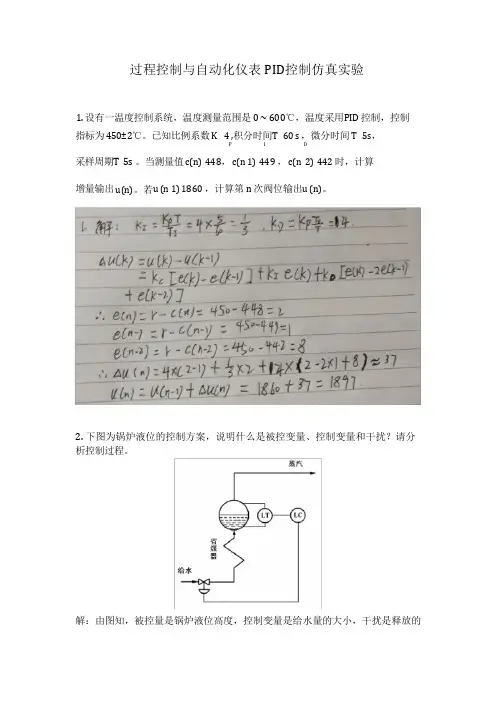 过程控制与自动化仪表 PID控制仿真实验
1. 设有一温度控制系统，温度测量范围是 0 ~ 600℃，温度采用PID 控制，控制
指标为 450±2℃。已知比例系数K 4 ,积分时间T 60 s，微分时间 T 5s，
P I D
采样周期T 5s 。当测量值 c(n) 448，c(n 1) 449 ，c(n 2) 442 时，计算
增量输出 u(n)。若u (n 1) 1860 ，计算第 n 次阀位输出u (n)。
1. 解： KI = KpT/TI = 4×5/6 = 1/3 , KD = KpTD/T = 14
Δu(k) = u(k) - u(k-1)
= Kc [e(k) - e(k-1)] + KI e(k) + KD [e(k) - 2e(k-1)
+ e(k-2)]
∴ e(n) = r - c(n) = 450 - 448 = 2
e(n-1) = r - c(n-1) = 450-449 = 1
e(n-2) = r - c(n-2) = 450 - 442 = 8
∴ Δu(n) = 4×(2-1) + 1/3×2 + 14×(2-2×1+8) ≈ 37
u(n) = u(n-1) + Δu(n) = 1860 + 37 = 1897
2. 下图为锅炉液位的控制方案，说明什么是被控变量、控制变量和干扰？请分
析控制过程。
蒸汽
LT
LC
省煤器
给水
解：由图知，被控量是锅炉液位高度，控制变量是给水量的大小，干扰是释放的